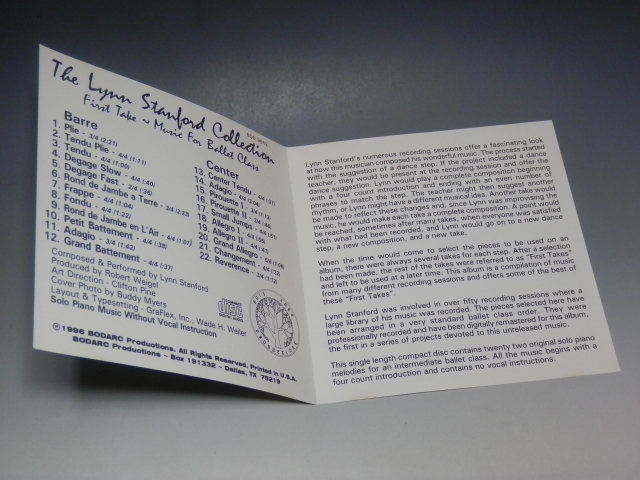 The Lynn Stanford Collection
First Take ~ Music For Ballet Class
Barre
1. Plie - 3/4 (2:21)
2. Tendu Plie - 4/4 (1:11)
3. Tendu - 4/4 (1:00)
4. Degage Slow - 4/4 (:40)
5. Degage Fast - 2/4 (:36)
6. Rond de Jambe a Terre - 3/4 (2:23)
7. Frappe - 4/4 (1:06)
8. Fondu - 4/4 (1:22)
9. Rond de Jambe en L'Air - 4/4 (1:07)
10. Petit Battement - 4/4 (:38)
11. Adagio - 3/4 (1:43)
12. Grand Battement - 4/4 (:37)
Center
13. Center Tendu - 4/4 (:37)
14. Adagio - 4/4
15. Pirouette I - 3/4
16. Pirouette II - 3/4
17. Small Jumps - 4/4 (:51)
18. Allegro I - 4/4
19. Allegro II - 4/4
20. Grand Allegro - 6/8 (1:06)
21. Changement - 4/4
22. Reverence - 4/4 (1:12)
Composed & Performed by Lynn Stanford
Produced by Robert Weigel
Art Direction - Clifton Pine
Cover Photo by Buddy Myers
Layout & Typesetting - GraFlex, Inc., Wade H. Weiler
Solo Piano Music Without Vocal Instruction
℗1996 BODARC Productions. All Rights Reserved. Printed in U.S.A.
BODARC Productions - Box 191332 - Dallas, TX 75219
Lynn Stanford's numerous recording sessions offer a fascinating look
at how this musician composed his wonderful music. The process started
with the suggestion of a dance step. If the project included a dance
teacher, they would be present at the recording session and offer the
dance suggestion. Lynn would play a complete composition beginning
with a four count introduction and ending with an even number of
phrases to match the step. The teacher might then suggest another
rhythm, or Lynn might have a different musical idea. Another take would
be made to reflect these changes and, since Lynn was improvising the
music, he would make each take a complete composition. A point would
be reached, sometimes after many takes, when everyone was satisfied
with what had been recorded, and Lynn would go on to a new dance
step, a new composition, and a new take.
When the time would come to select the pieces to be used on an
album, there were always several takes for each step. After a selection
had been made, the rest of the takes were referred to as "First Takes"
and left to be used at a later time. This album is a compilation of music
from many different recording sessions and offers some of the best of
these "First Takes".
Lynn Stanford was involved in over fifty recording sessions where a
large library of his music was recorded. The pieces selected here have
been arranged in a very standard ballet class order. They were
professionally recorded and have been digitally remastered for this album,
the first in a series of projects devoted to this unreleased music.
This single length compact disc contains twenty two original solo piano
melodies for an intermediate ballet class. All the music begins with a
four count introduction and contains no vocal instructions.